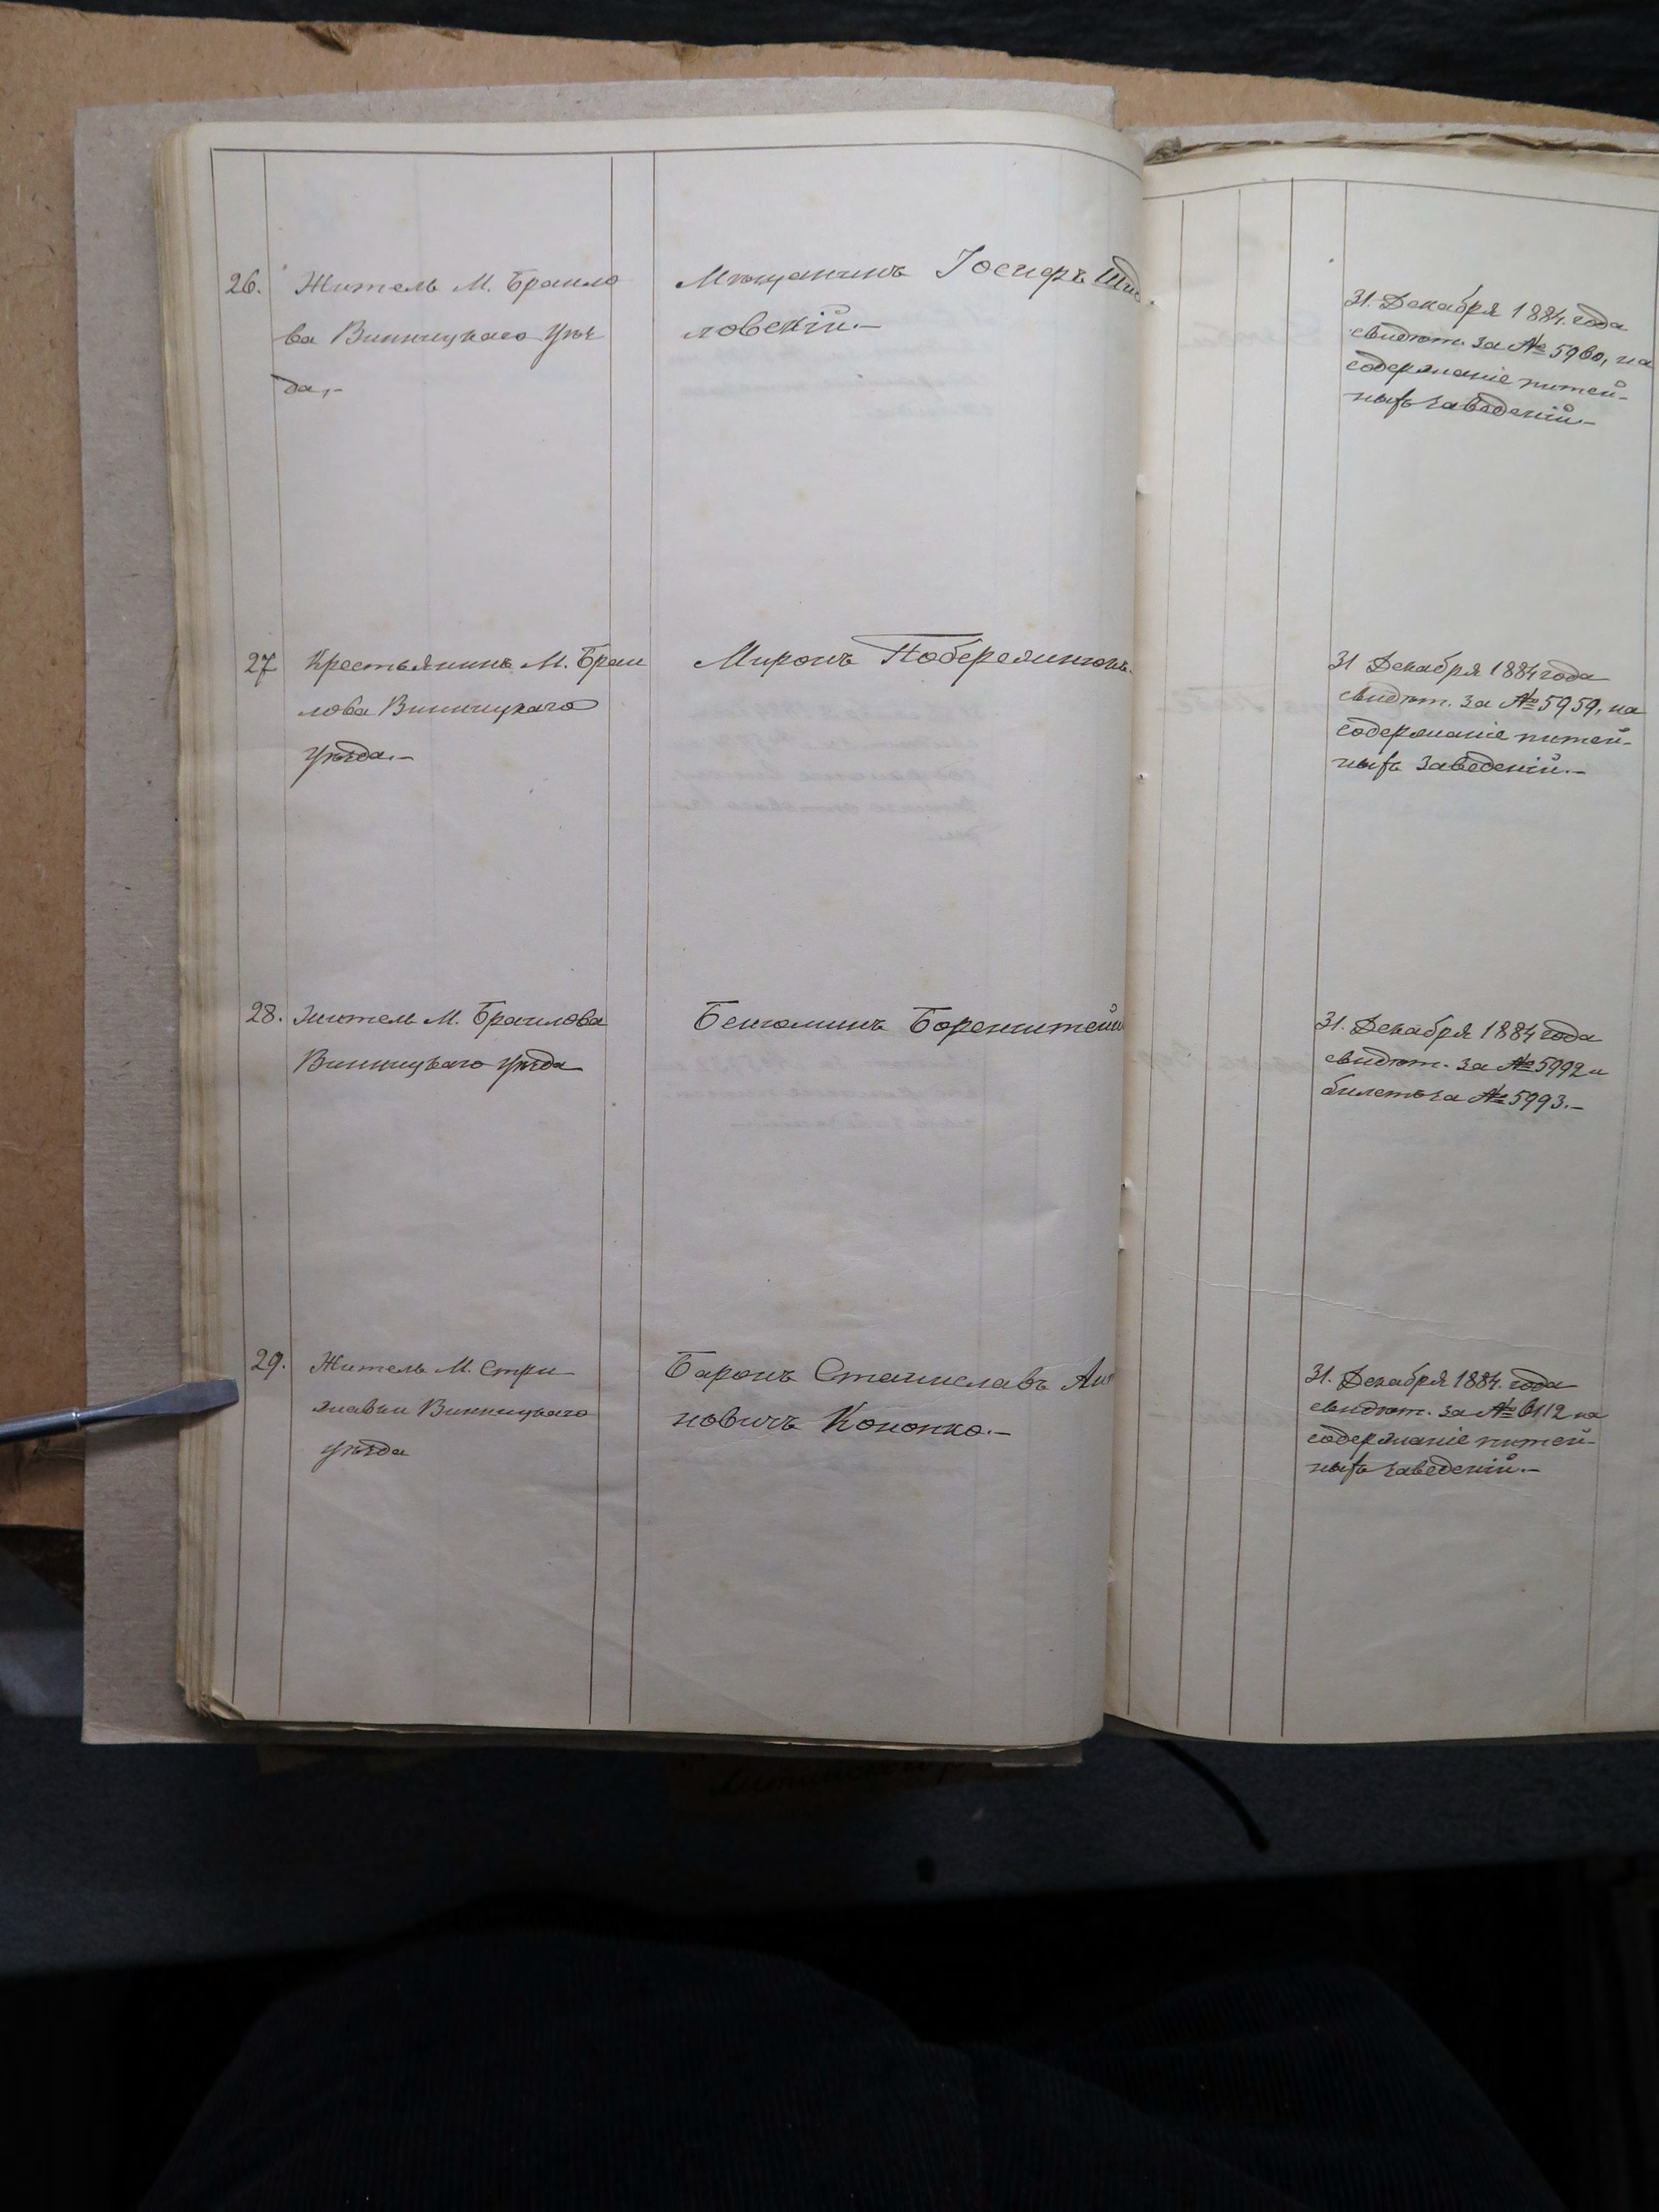 26. Житель М. Браило
ва Винницкаго Уѣз
да,-
Мѣщанинъ Іосифъ
ловскій.-
31. Декабря 1884. года
свидѣт. за № 5960, на
содержаніе питей-
ныхъ заведеній.-
27 Крестьянинъ М. Браи
лова Винницкаго
Уѣзда.-
Миронъ Побережинюкъ.
31 Декабря 1884 года
свидѣт. за № 5959, на
содержаніе питей-
ныхъ заведеній.-
28. Житель М. Браилова
Винницкаго уѣзда
Беніоминъ Боренштейнъ
31. Декабря 1884 года
свидѣт. за № 5992 и
билетъ за № 5993.-
29. Житель М. Стри
жавки Винницкаго
уѣзда
Баронъ Станиславъ Ян
новичъ Конопко.-
31. Декабря 1884. года
свидѣт. за № 6112 на
содержаніе питей-
ныхъ заведеній.-